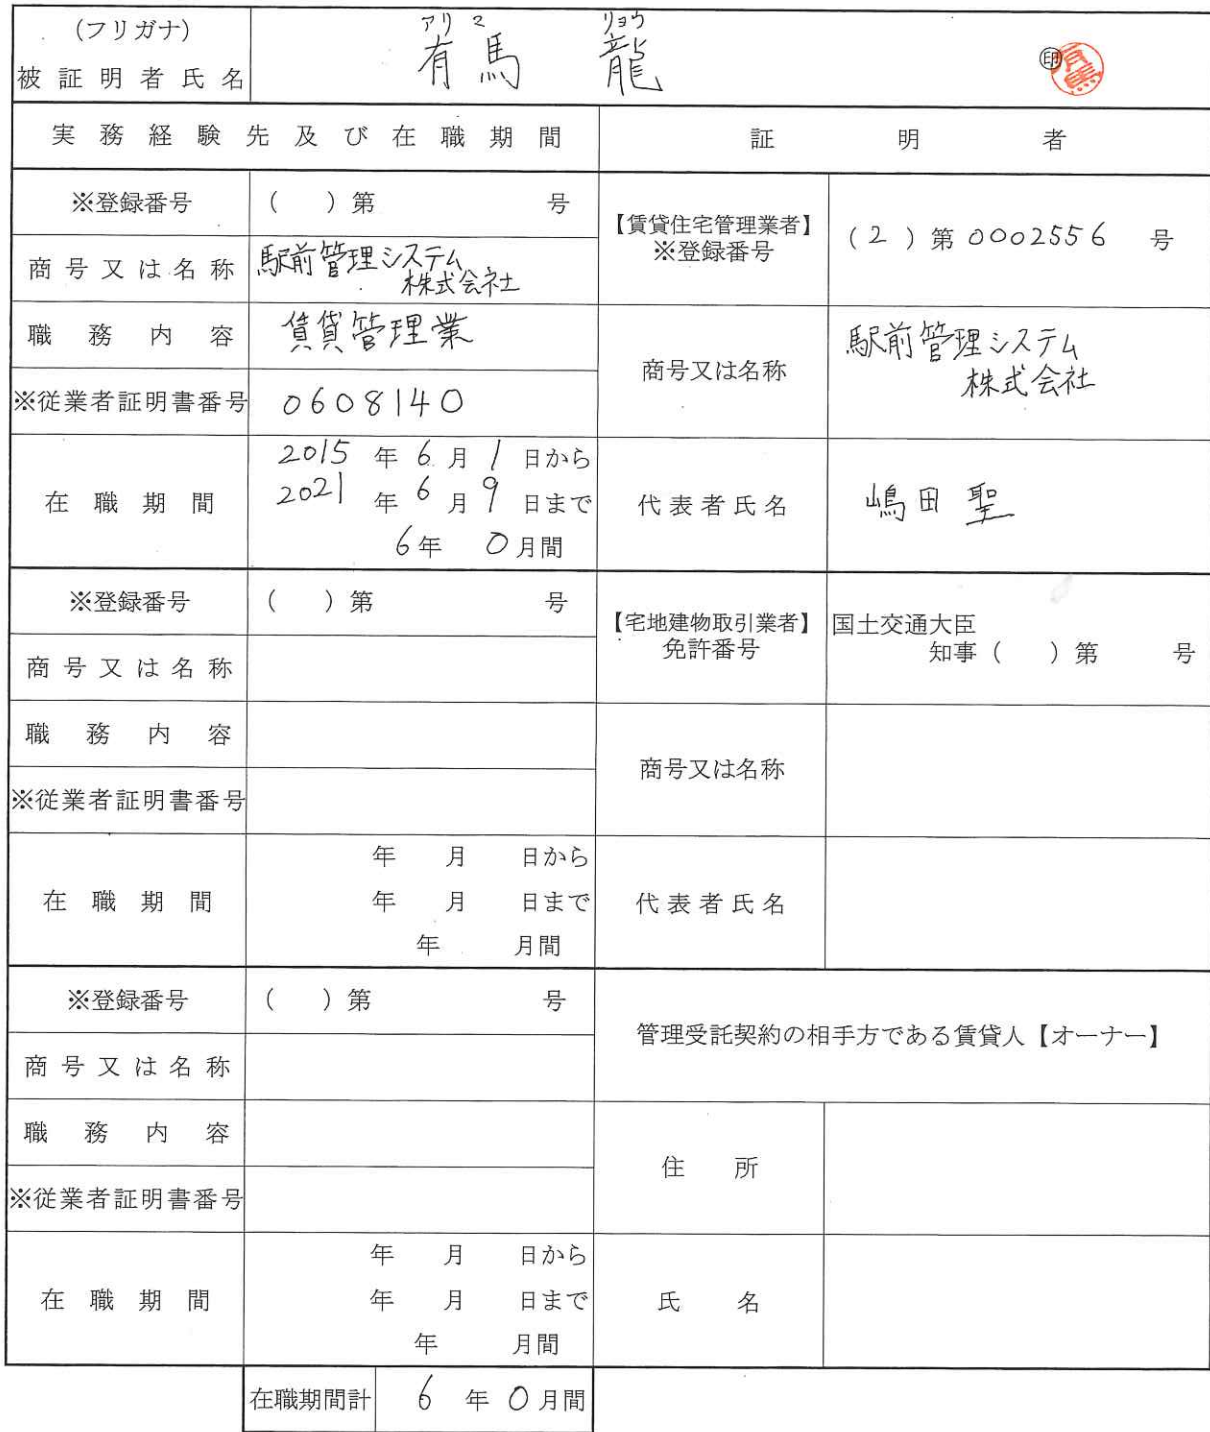 (フリガナ)
アリマ リョウ
被証明者氏名
有馬 龍
㊞
有馬
実務経験先及び在職期間
証明者
※登録番号
( )第 号
【賃貸住宅管理業者】
※登録番号
(2)第0002556 号
商号又は名称
駅前管理システム
株式会社
職務内容
賃貸管理業
商号又は名称
駅前管理システム
株式会社
※従業者証明書番号
0608140
在職期間
2015 年 6 月 1 日から
2021 年 6 月 9 日まで
6年 0月間
代表者氏名
嶋田 聖
※登録番号
( )第 号
【宅地建物取引業者】
免許番号
国土交通大臣
知事( )第 号
商号又は名称
職務内容
商号又は名称
※従業者証明書番号
在職期間
年 月 日から
年 月 日まで
年 月間
代表者氏名
※登録番号
( )第 号
管理受託契約の相手方である賃貸人【オーナー】
商号又は名称
職務内容
住所
※従業者証明書番号
在職期間
年 月 日から
年 月 日まで
年 月間
氏名
在職期間計
6 年 0 月間